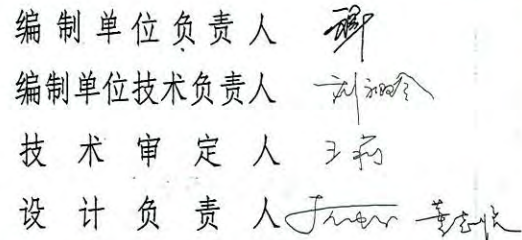 编制单位负责人
编制单位技术负责人 刘
技术审定人 王莉
设计负责人 董志